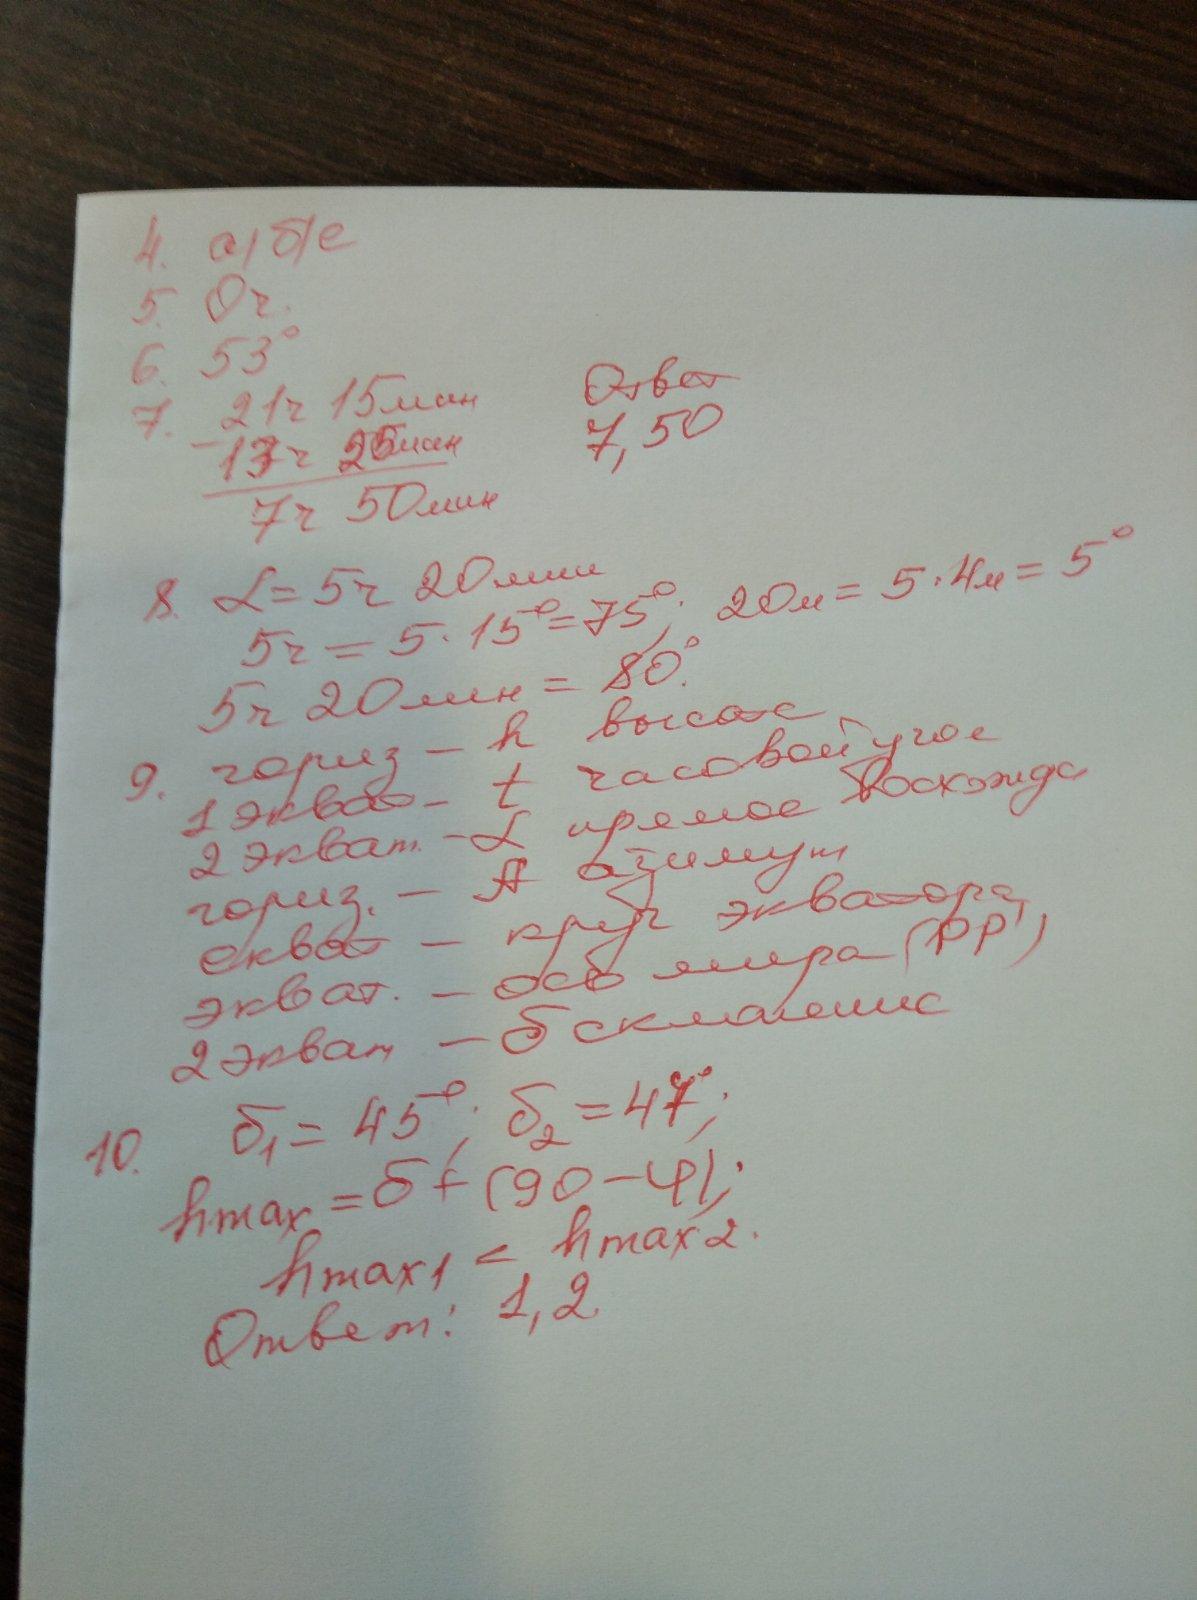 4. а, б, е
5. 0ч.
6. 53°
7. 21ч 15мин Ответ
- 13ч 25мин 7,50
7ч 50мин
8. α = 5ч 20мин
5ч = 5·15° = 75°; 20м = 5·4м = 5°
5ч 20мин = 80°.
9. гориз – h высота
1 экват – t часовой угол
2 экват. – α прямое восхожде
гориз. – A азимут
екват – круг экватора
экват. – ось мира (PP')
2 экват – δ склонение
10. δ1 = 45°; δ2 = 47°;
hmax = δ + (90 – φ);
hmax1 < hmax2.
Ответ: 1,2.